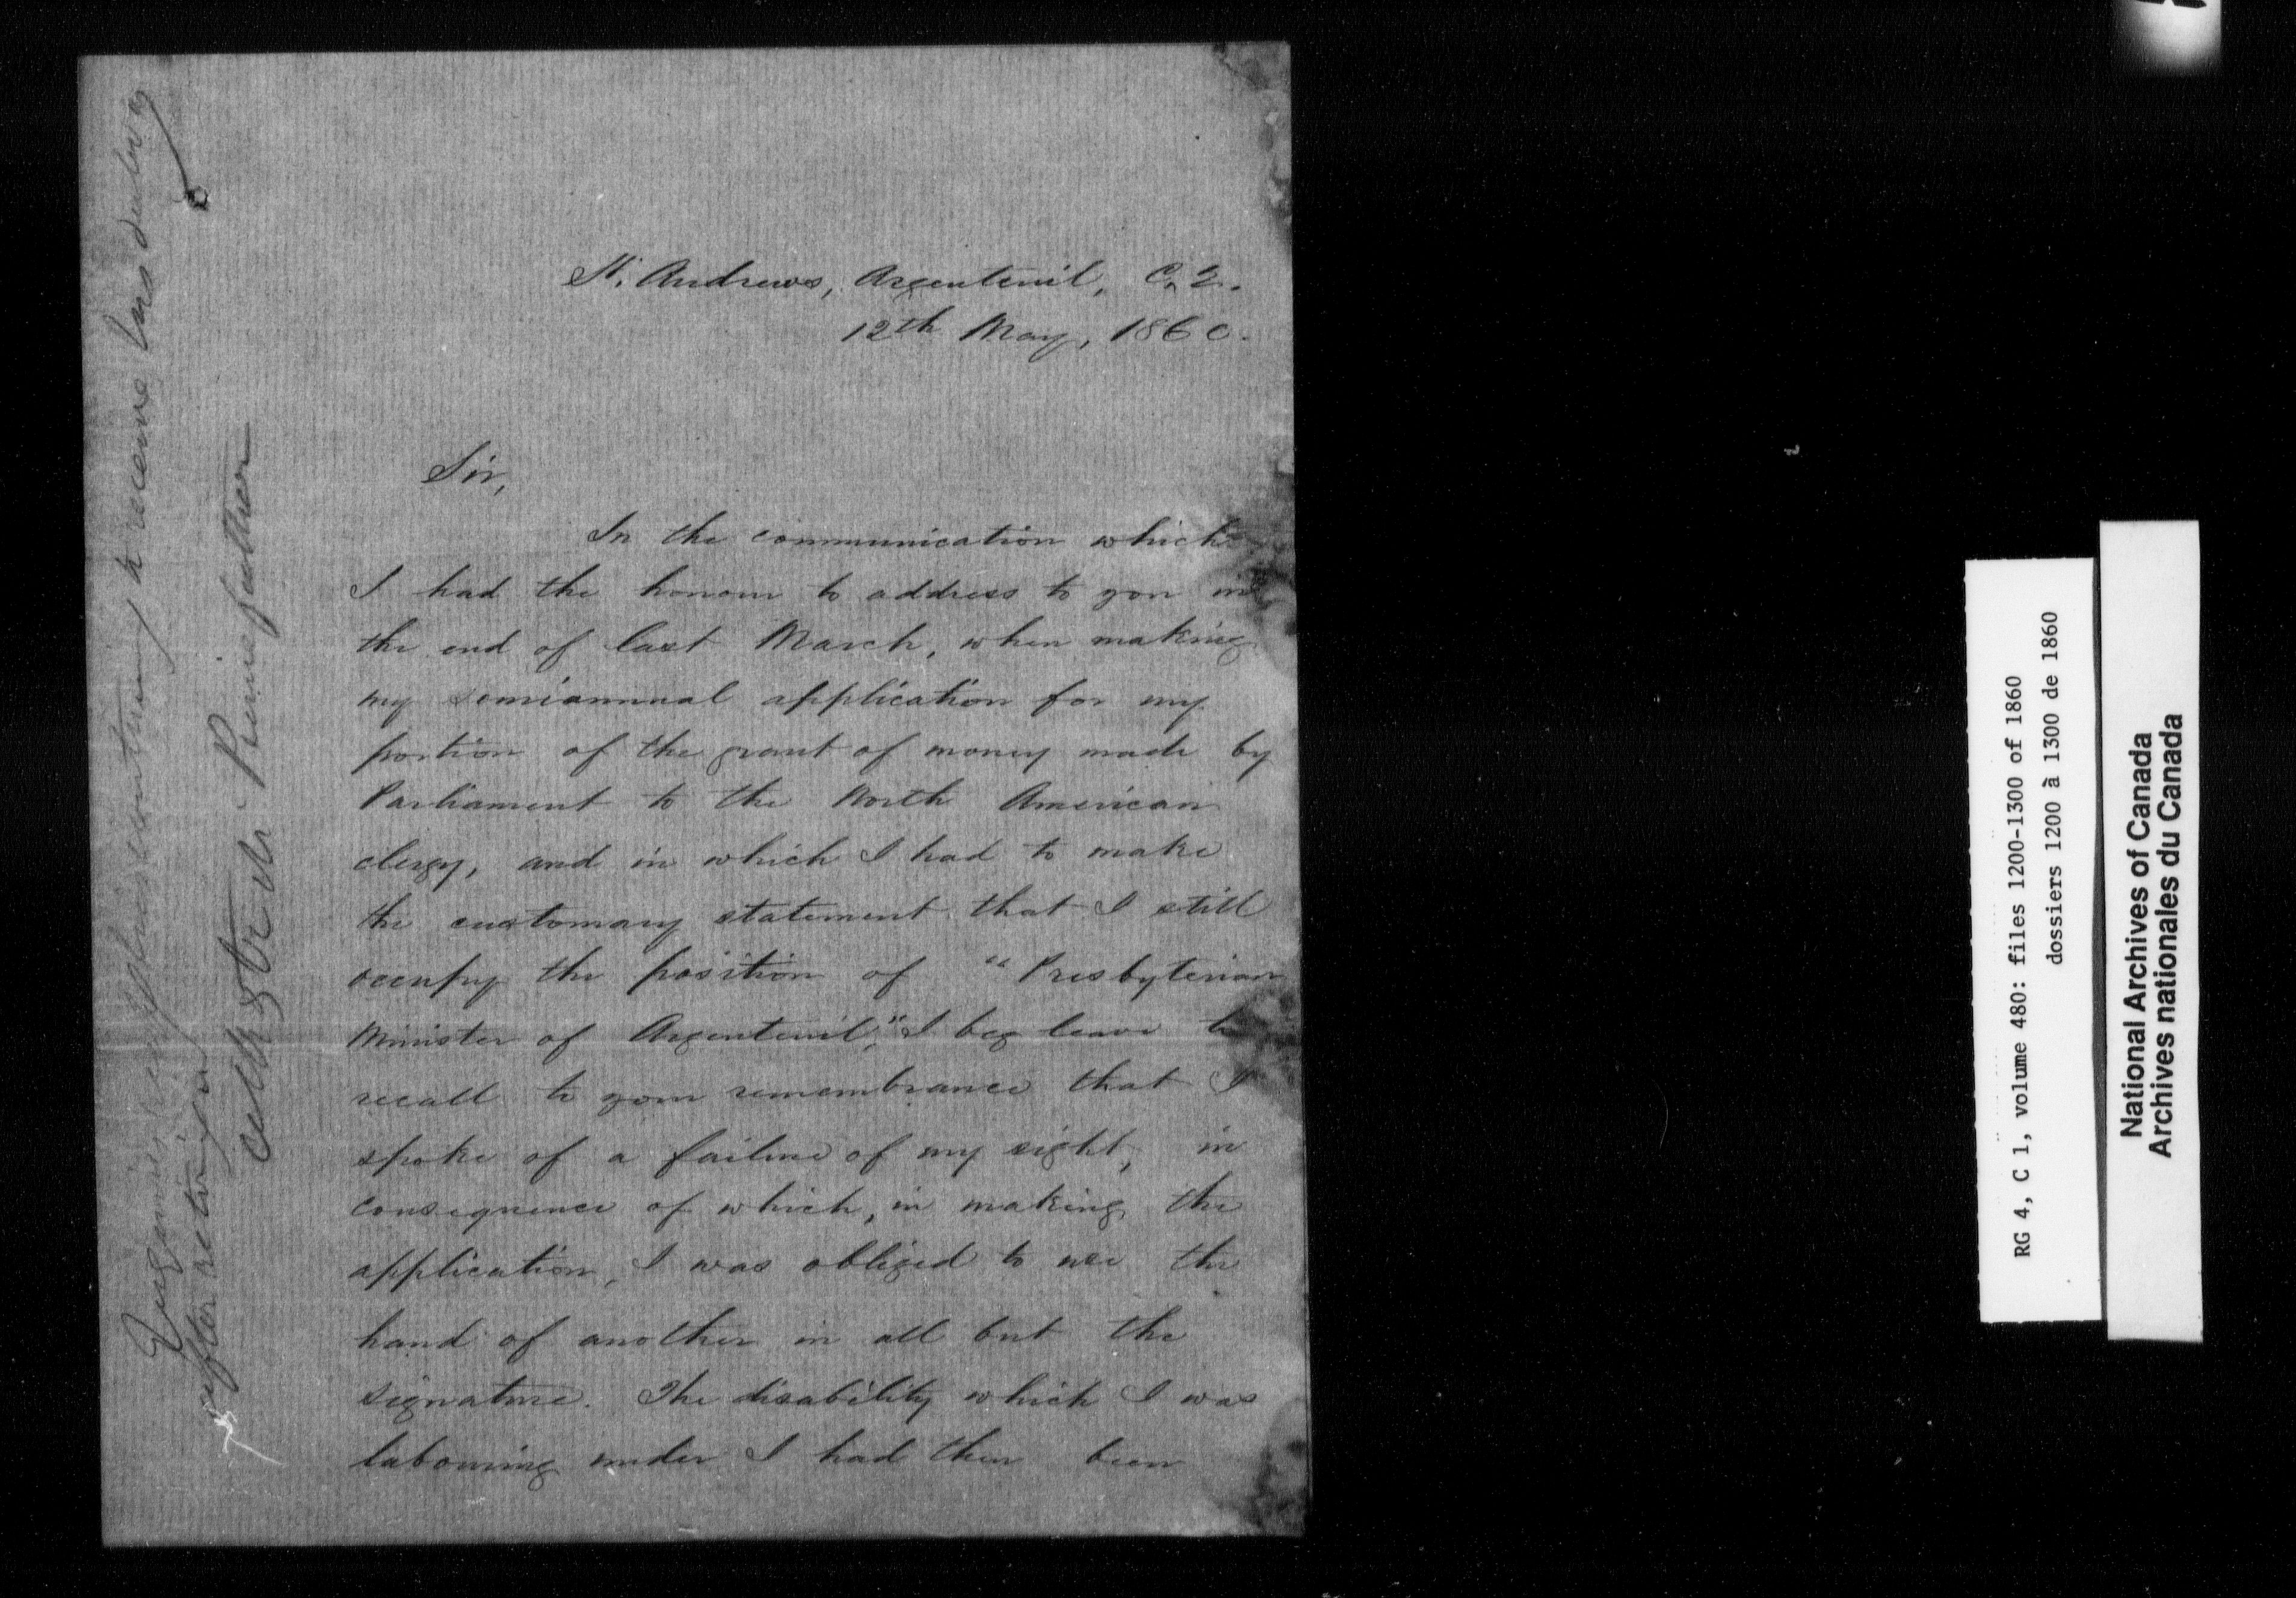 St. Andrews, Argenteuil, C. E.
12th May, 1860.
Sir,
In the communication which
I had the honour to address to you in
the end of last March, when making
my semiannual application for my
portion of the grant of money made by
Parliament to the North American
clergy, and in which I had to make
the customary statement that I still
occupy the position of "Presbyterian
Minister of Argenteuil", I beg leave to
recall to your remembrance that I
spoke of a failure of my sight, in
consequence of which, in making the
application, I was obliged to use the
hand of another in all but the
signature. The disability which I was
labouring under I had then been
continuing to receive his
after
father
RG 4, C 1, volume 480: files 1200-1300 of 1860
dossiers 1200 à 1300 de 1860
National Archives of Canada
Archives nationales du Canada